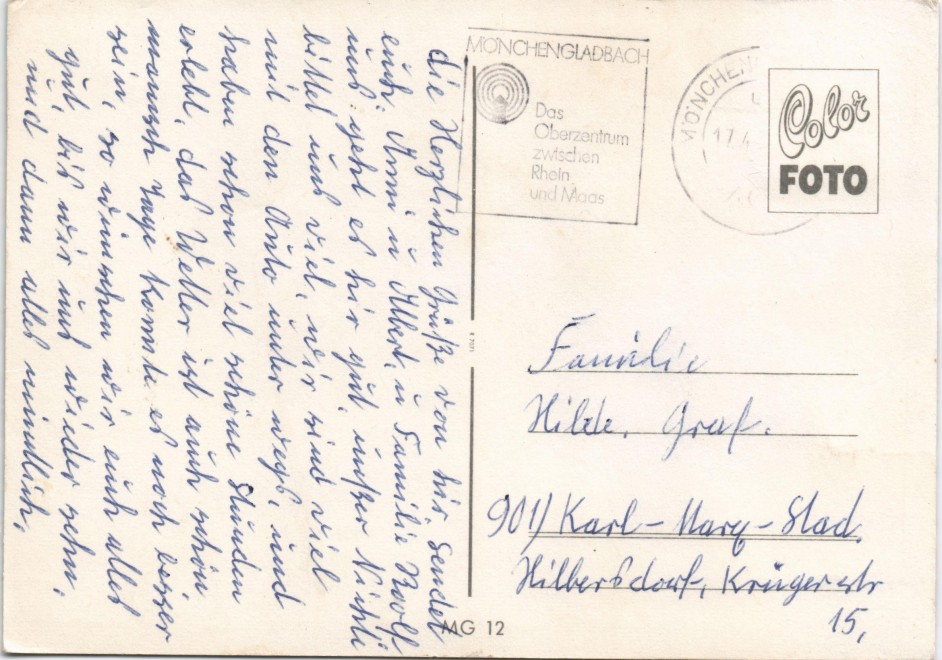 die Herzlichen Grüße von hir Sendet
euch. Anni u Albert, u Familie Roolf
uns geht es hir gut, unßer Nichti
bittet uns viel, wir sind viel
mit den Auto unter wegs, und
haben schon viel schöne Stunden
erlebt, das Wetter ist auch schön,
mansch Tage konnte es noch besser
sein, so wünschen wir euch alles
gut, bis wir uns wieder sehn,
und dann alles mündlich,
MÖNCHENGLADBACH
Das
Oberzentrum
zwischen
Rhein
und Maas
MÖNCHEN
17.4
Color
FOTO
Familie
Hilde, Graf.
901) Karl-Marx-Stad,
Hilbersdorf, Krügerstr
15,
MG 12